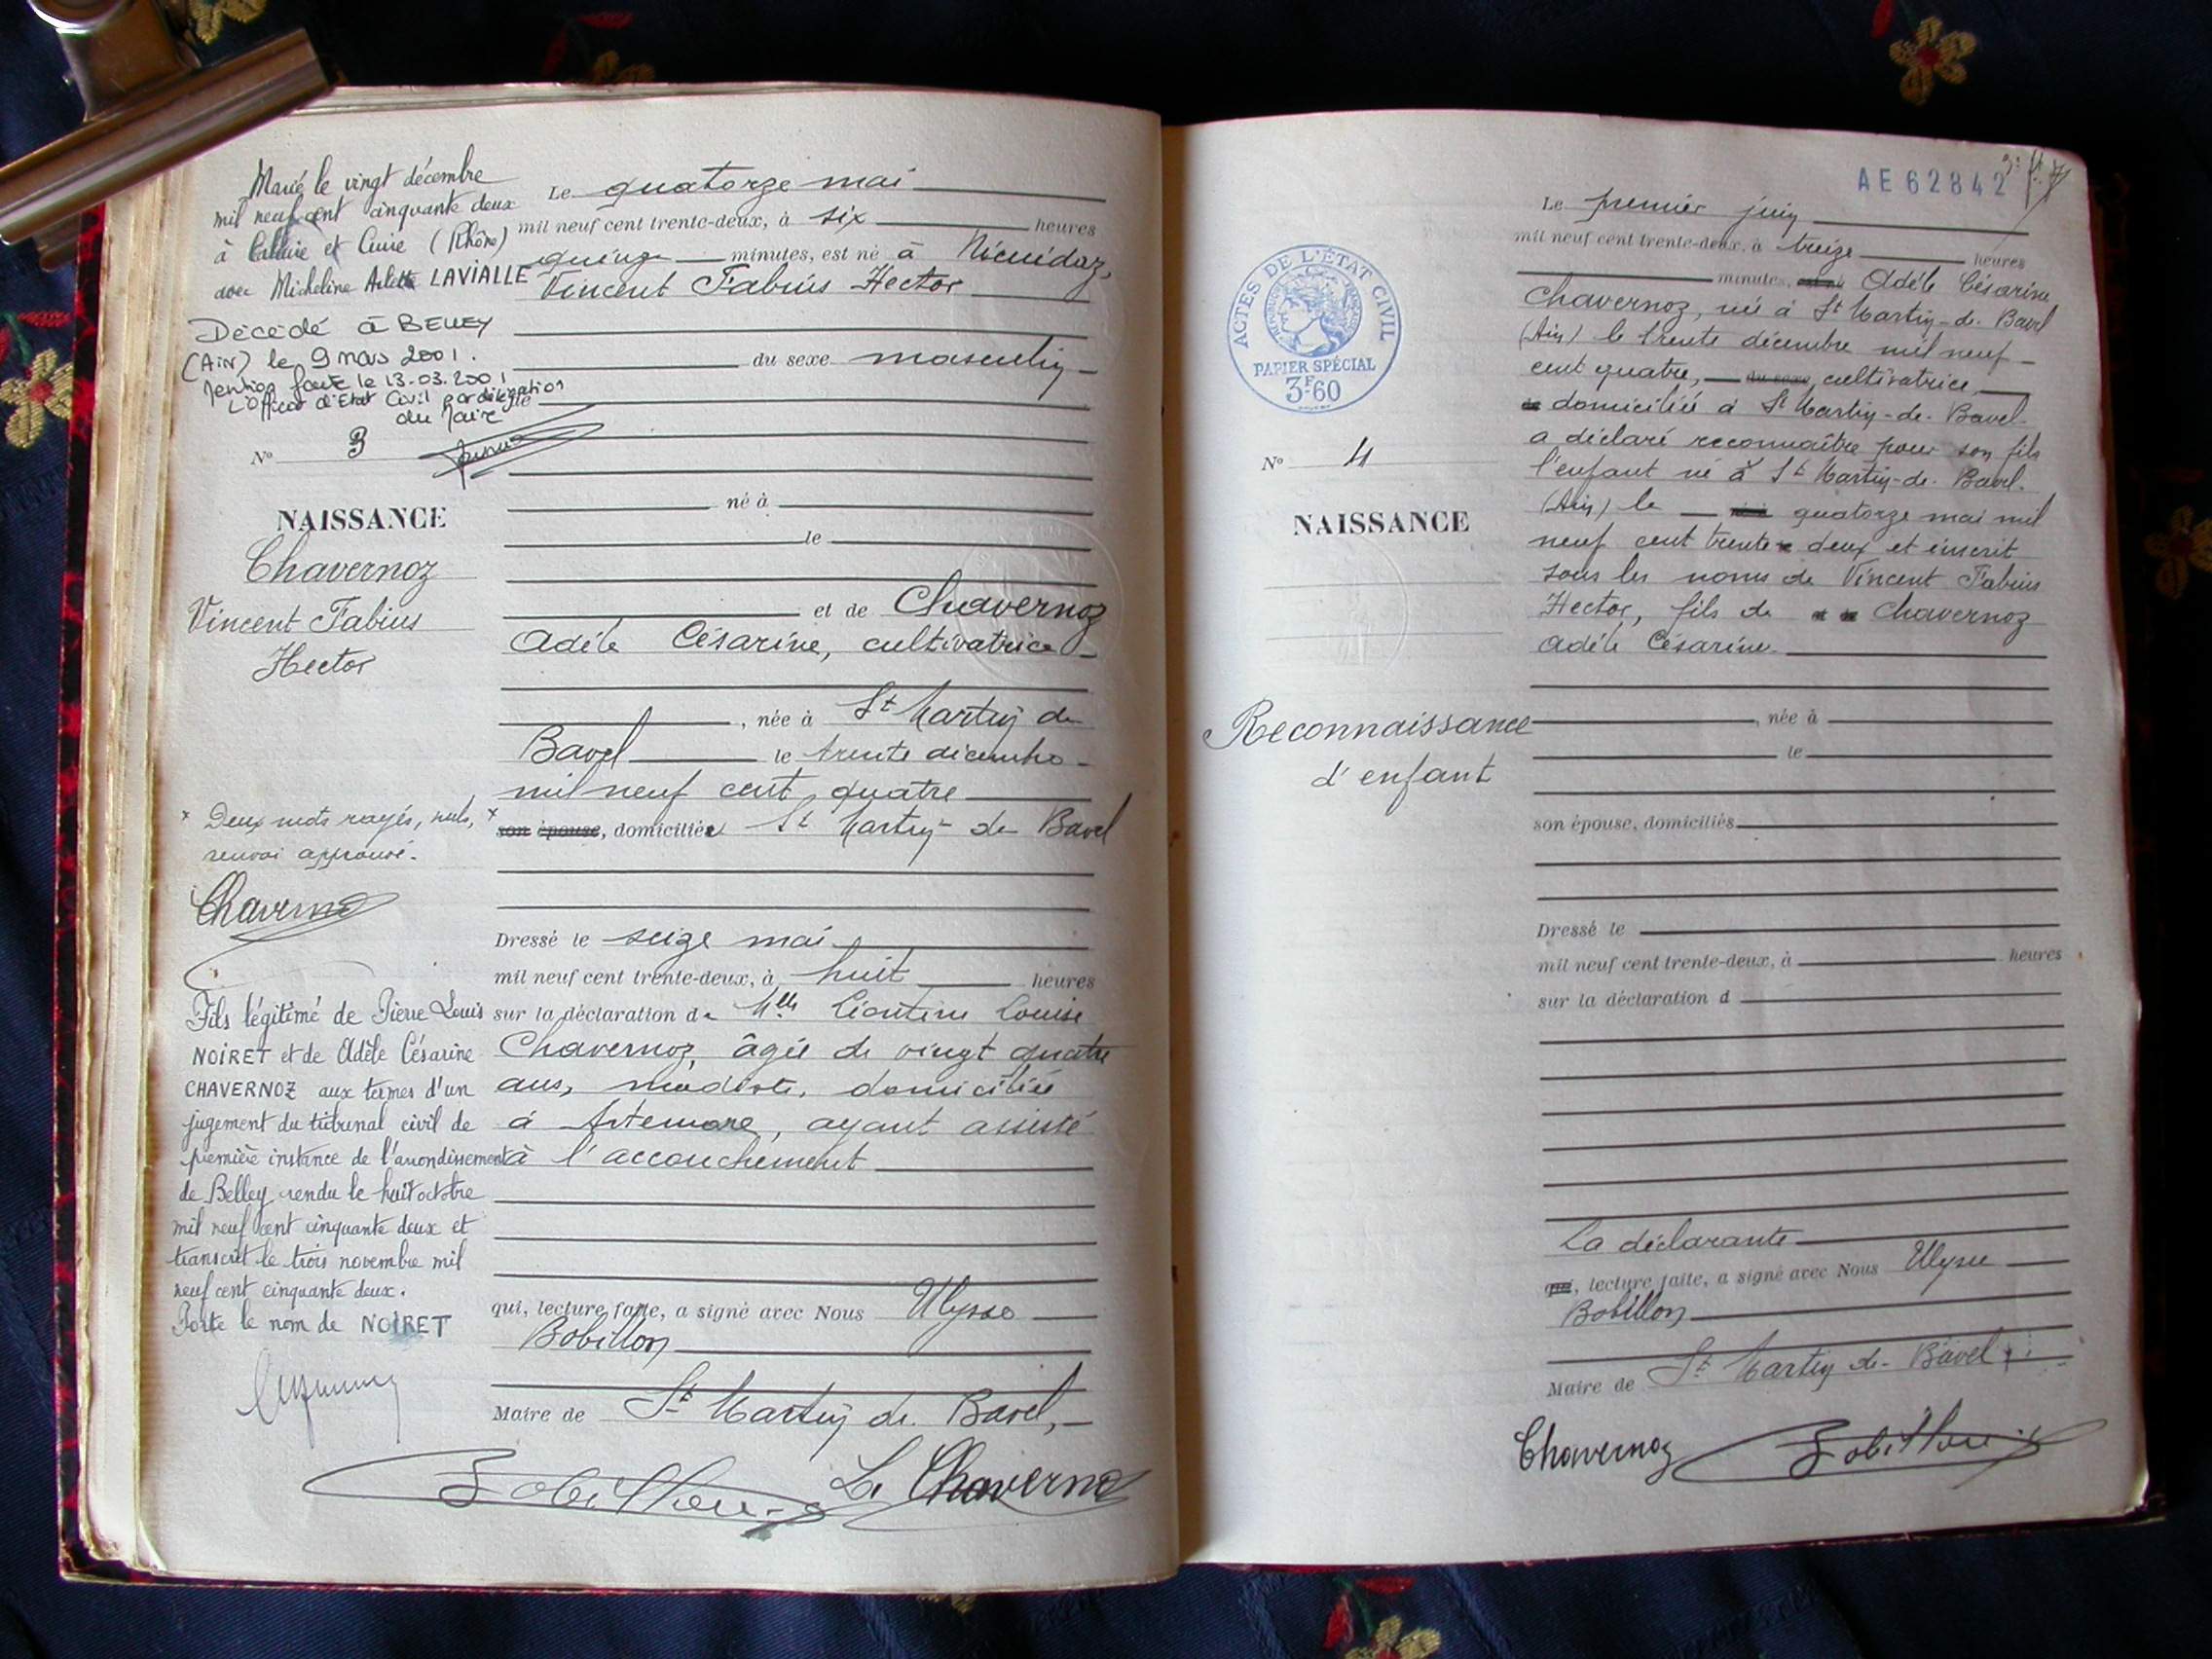 Marié le vingt décembre
mil neuf cent cinquante deux
à Caluire et Cuire (Rhône)
avec Micheline Arlette LAVIALLE
Décédé à BELLEY
(AiN) le 9 mars 2001.
Mention faite le 13-03.2001
L'Officier d'Etat Civil par délégation
du Maire
N° 3
NAISSANCE
Chavernoz
Vincent Fabius
Hector
* Deux mots rayés, nuls,
renvoi approuvé.
Chavernoz
Fils légitimé de Pierre Louis
NOIRET et de Adèle Césarine
CHAVERNOZ aux termes d'un
jugement du tribunal civil de
première instance de l'arrondissement
de Belley rendu le huit octobre
mil neuf cent cinquante deux et
transcrit le trois novembre mil
neuf cent cinquante deux.
Porte le nom de NOIRET
Le quatorze mai
mil neuf cent trente-deux, à six heures
quinze minutes, est né à
Vincent Fabius Hector
du sexe masculin
né à
le
et de Chavernoz
Adèle Césarine, cultivatrice
, née à St Martin de
Bavel le trente décembre
mil neuf cent quatre
* son épouse, domiciliée St Martin-de Bavel
Dressé le seize mai
mil neuf cent trente-deux, à huit heures
sur la déclaration de Mlle Léontine Louise
Chavernoz, âgée de vingt quatre
ans, modiste, domiciliée
à Artemare, ayant assisté
à l'accouchement
qui, lecture faite, a signé avec Nous Ulysse
Bobillon
Maire de St Martin de Bavel,
Bobillon L. Chavernoz
AE 62842
ACTES DE L'ÉTAT CIVIL
PAPIER SPÉCIAL
3F60
N° 4
NAISSANCE
Reconnaissance
d'enfant
Le premier juin
mil neuf cent trente-deux, à treize heures
minutes, Adèle Césarine
Chavernoz, née à St Martin-de-Bavel
(Ain) le trente décembre mil neuf
cent quatre, du sexe, cultivatrice
domiciliée à St Martin-de-Bavel
a déclaré reconnaître pour son fils
l'enfant né à St Martin-de-Bavel
(Ain) le quatorze mai mil
neuf cent trente deux et inscrit
sous les noms de Vincent Fabius
Hector, fils de Chavernoz
Adèle Césarine
, née à
le
son épouse, domiciliés
Dressé le
mil neuf cent trente-deux, à heures
sur la déclaration d
La déclarante
qui, lecture faite, a signé avec Nous Ulysse
Bobillon
Maire de St Martin de-Bavel
Chavernoz Bobillon